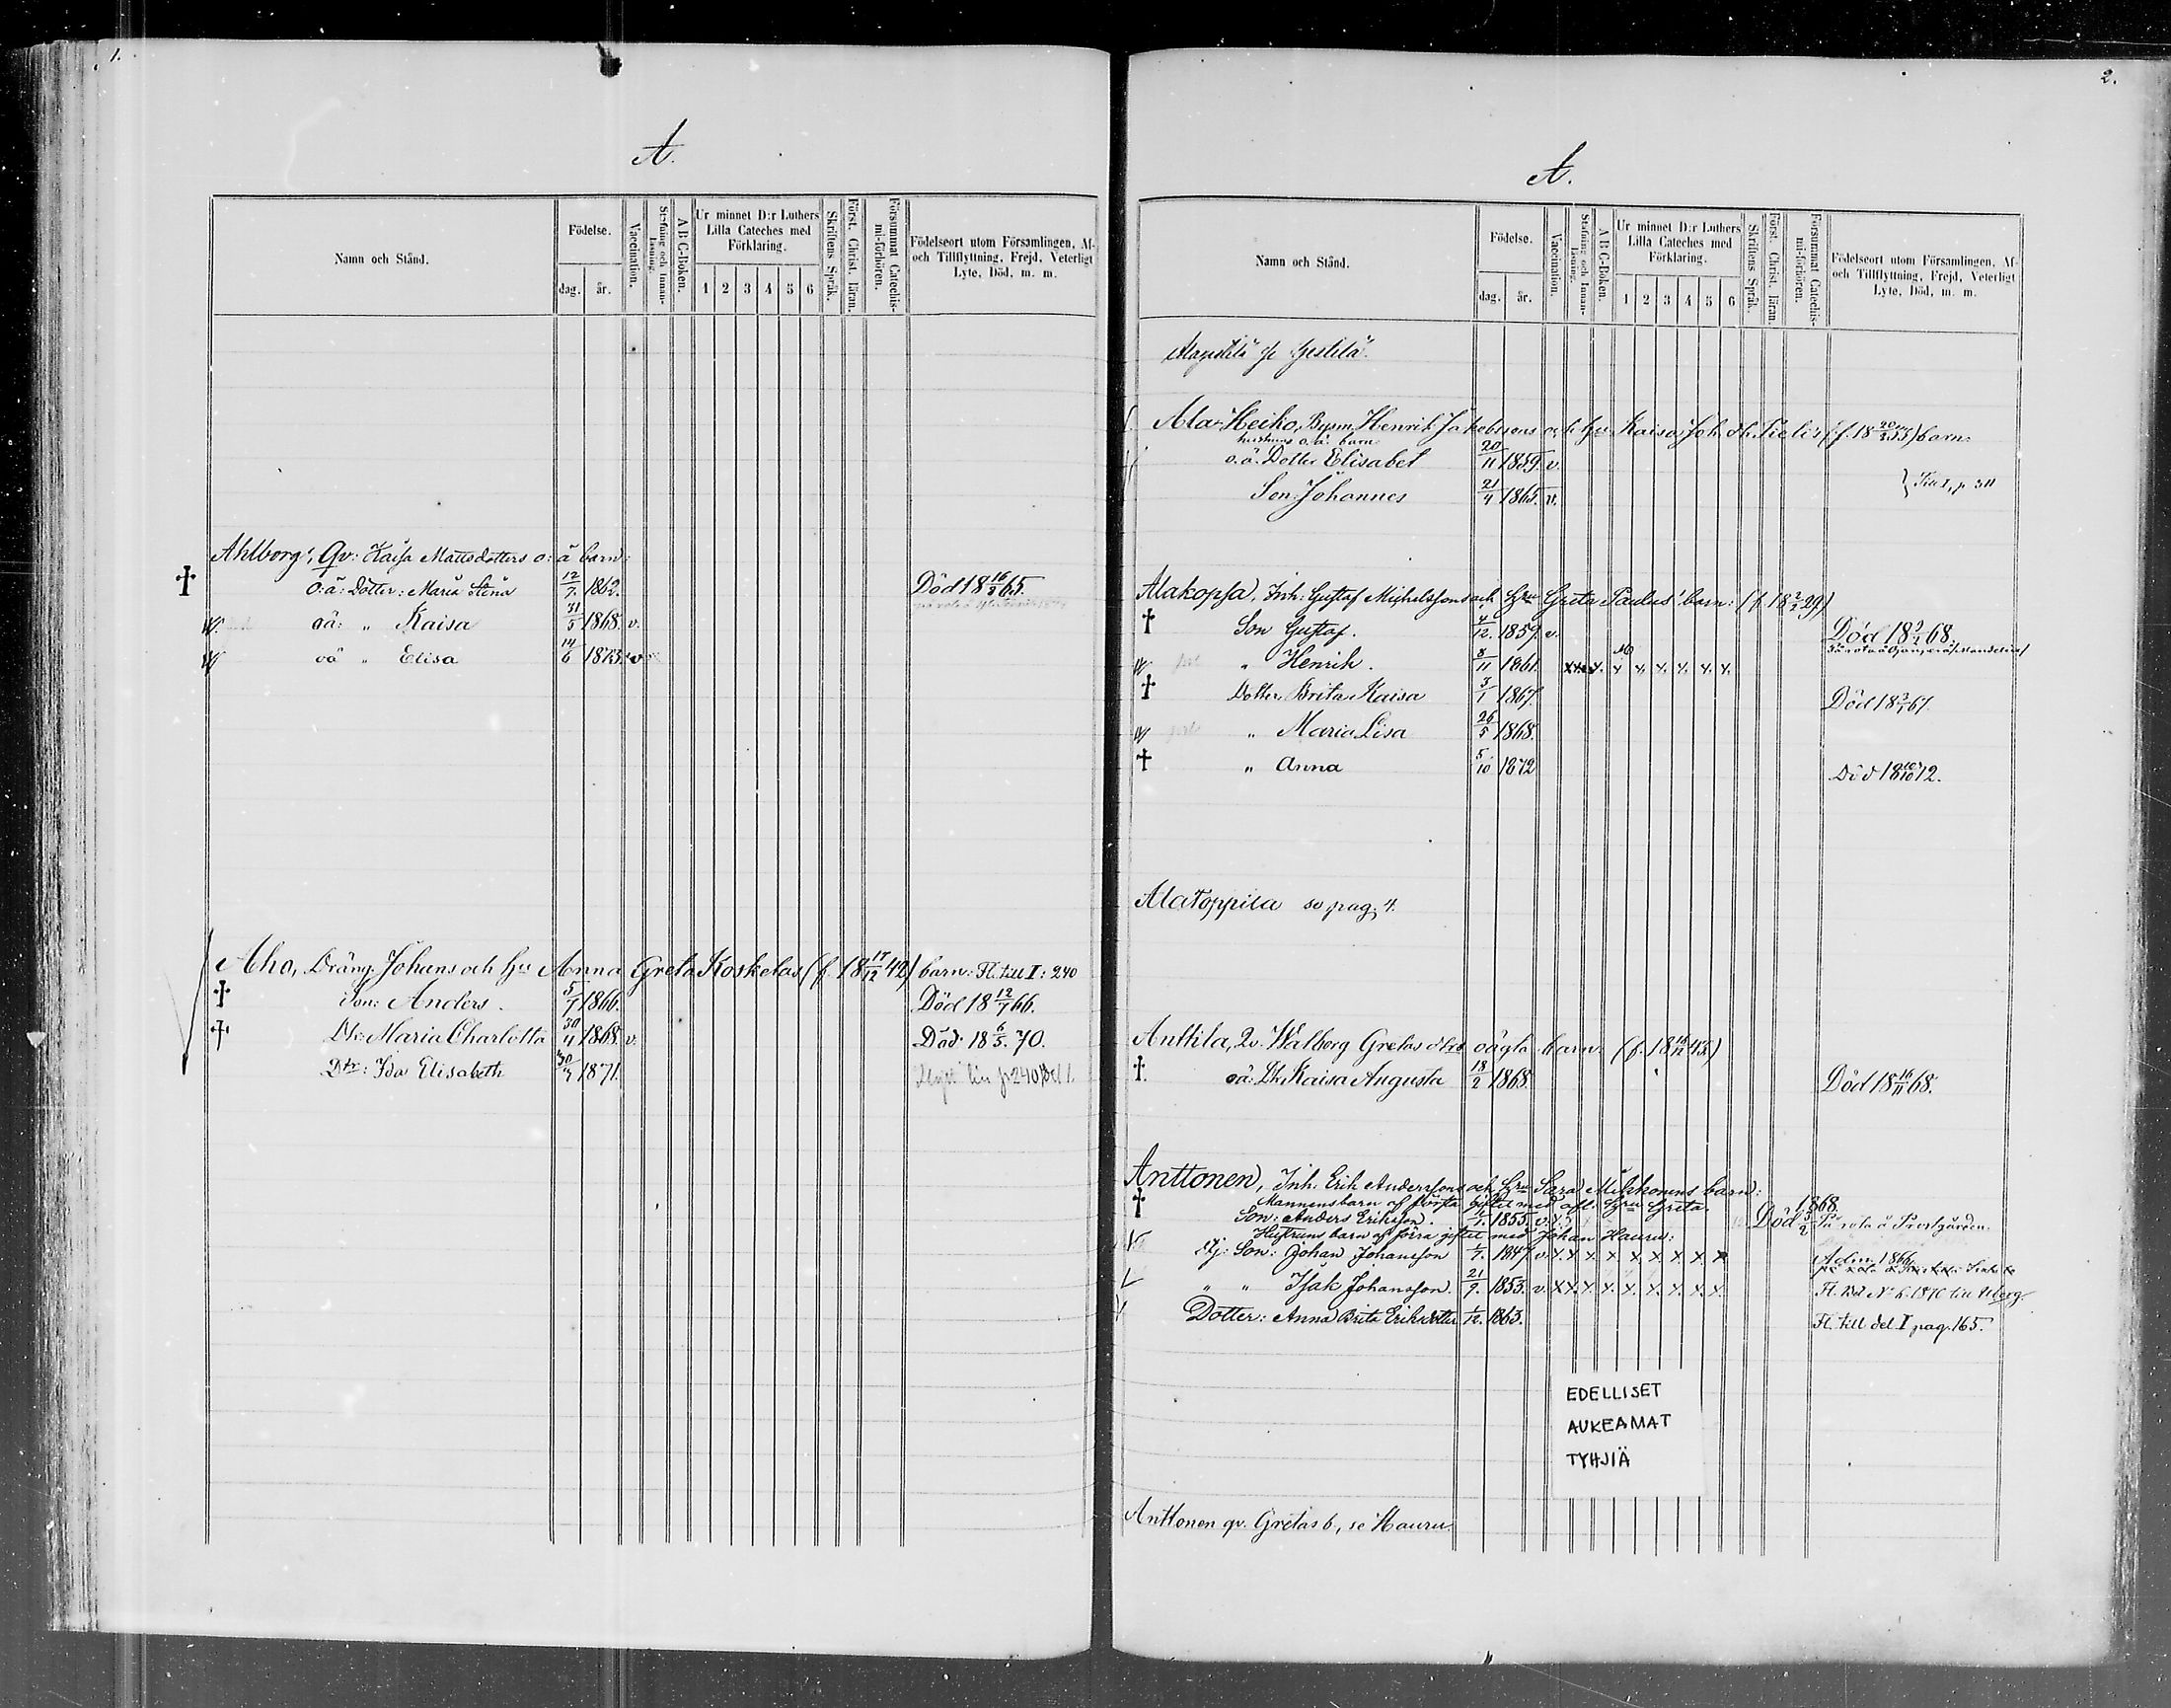 1.
A.
Namn och Stånd.
Födelse.
dag.
år.
Vaccination.
Stafning och Innan-
läsning.
A B C-Boken.
Ur minnet D:r Luthers
Lilla Cateches med
Förklaring.
1 2 3 4 5 6
Skriftens Språk.
Först. Christ. läran.
Försummat Catechis-
mi-förhören.
Födelseort utom Församlingen, Af-
och Tillflyttning, Frejd, Veterligt
Lyte, Död, m. m.
Ahlborg, Qv: Kaisa Mattsdotters o: ä barn:
† O: ä: Dotter: Maria Stina 12/7. 1862. Död 18 16/5 65.
oä: „ Kaisa 31/5 1868. v.
oä „ Elisa 14/6 1873. v
Aho, Dräng. Johans och Hu Anna Greta Koskelas (f. 18 17/12 42) barn: Fl. till I: 240
† Son: Anders. 5/7 1866. Död 18 12/7 66.
† Dtr: Maria Charlotta 30/4 1868. v. Död 18 6/5. 70.
Dtr: Ida Elisabeth 30/4 1871. p 240
2.
A.
Namn och Stånd.
Födelse.
dag.
år.
Vaccination.
Stafning och Innan-
läsning.
A B C-Boken.
Ur minnet D:r Luthers
Lilla Cateches med
Förklaring.
1 2 3 4 5 6
Skriftens Språk.
Först. Christ. läran.
Försummat Catechis-
mi-förhören.
Födelseort utom Församlingen, Af-
och Tillflyttning, Frejd, Veterligt
Lyte, Död, m. m.
Ala-Heiko, Bysm. Henrik Jakobssons och Hu Kaisa Joh. dr. barn:
hustruns o. ä. barn
o. ä. Dotter Elisabet 20/11 1859. v.
Son Johannes 21/4 1865. v.
Alakopsa, Inh: Gustaf Michelssons och Hru Greta Paulus' barn: (f. 18 2/2 29)
† Son Gustaf. 4/12. 1859. v. Död 18 9/1 68.
„ Henrik. 8/11 1861. x x x x. x. x. x. x. x.
† Dotter Brita Kaisa 3/1 1867. Död 18 67.
„ Maria Lisa 26/5 1868.
† „ Anna 5/10 1872 Död 18 10/10 72.
Alatoppila se pag. 4.
Anttila, Qv. Walborg Gretas dtrs oägta barn:
†. oä: Dtr. Kaisa Augusta 18/2 1868. Död 18 16/11 68.
Anttonen, Inh. Erik Anderssons och Hru Sara Mikkonens barn:
Mannens barn af första giftet med afl. Hru Greta. 1868.
† Son: Anders Eriksson. 1855. v. x. Död På rota å Prostgården.
Hustruns barn af förra giftet med Johan Hauru:
Stj: Son: Johan Johansson 1/7. 1847. v. x. x x. x. x. x. x. x. x Adm. 1866.
„ „ Isak Johansson. 21/9. 1853. v. x x. x. x. x. x. x. x. x. Fl. Bet. No 6. 1870 till Uleåborg.
Dotter: Anna Brita Eriksdotter 1/12. 1863. Fl. till del I pag. 165.
EDELLISET
AUKEAMAT
TYHJIÄ
Anttonen qv. Gretas b., se Hauru.